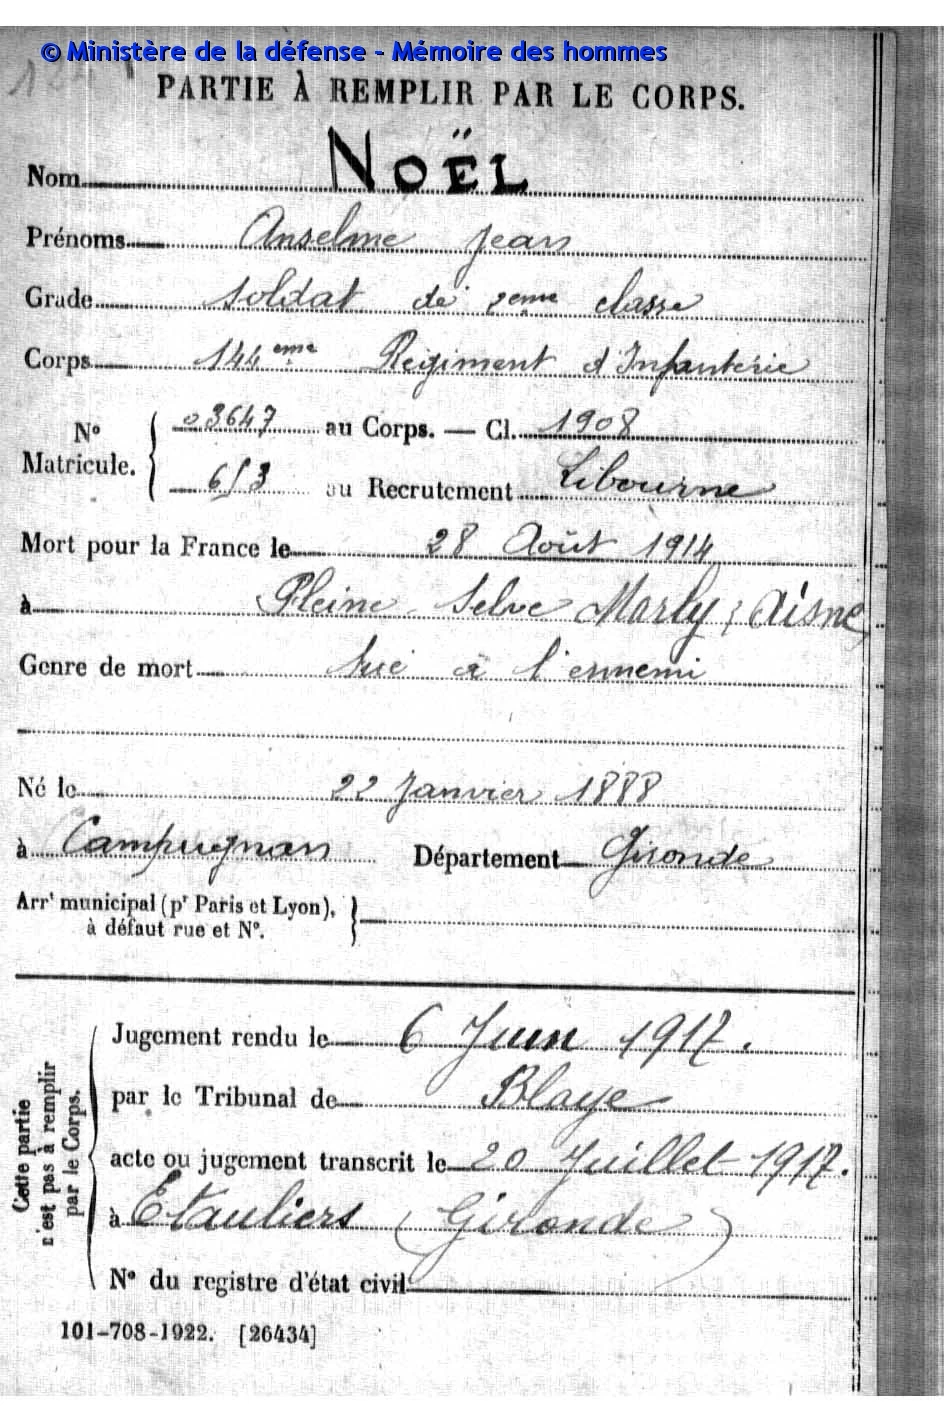 © Ministère de la défense - Mémoire des hommes
PARTIE À REMPLIR PAR LE CORPS.
Nom NOËL
Prénoms Anselme Jean
Grade Soldat de 2eme classe
Corps 144eme Régiment d'Infanterie
N° Matricule. 03647 au Corps. — Cl. 1908
653 au Recrutement Libourne
Mort pour la France le 28 Août 1914
à Pleine Selve Marly; Aisne
Genre de mort tué à l'ennemi
Né le 22 Janvier 1888
à Campugnan Département Gironde
Arrt municipal (pr Paris et Lyon),
à défaut rue et N°.
Cette partie n'est pas à remplir par le Corps.
Jugement rendu le 6 Juin 1917.
par le Tribunal de Blaye
acte ou jugement transcrit le 20 Juillet 1917.
à Etauliers (Gironde)
N° du registre d'état civil
101-708-1922. [26434]